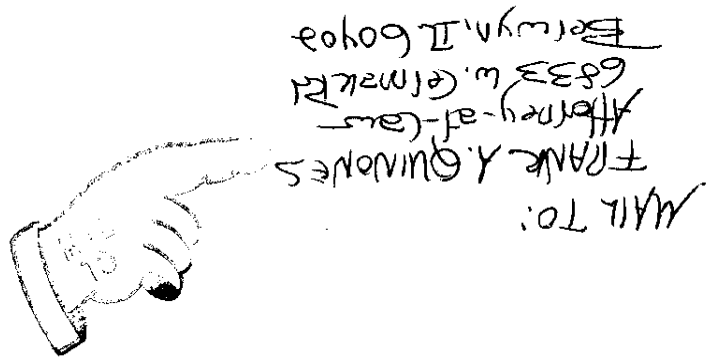 MAIL TO:
FRANK A. QUINONES
Attorney-at-Law
6833 W. Cermak Rd
Berwyn, IL 60402